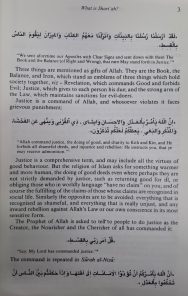 What is Shari'ah?
3
«لَقَدْ أَرْسَلْنَا رُسُلَنَا بِالْبَيِّنَاتِ وَأَنزَلْنَا مَعَهُمُ الْكِتَابَ وَالْمِيزَانَ لِيَقُومَ النَّاسُ
بِالْقِسْطِ.
"We sent aforetime our Apostles with Clear Signs and sent down with them The
Book and the Balance (of Right and Wrong), that men May stand forth in Justice."
Three things are mentioned as gifts of Allah. They are the Book, the
Balance, and Iron, which stand as emblems of three things which hold
society together, viz - Revelation, which commands Good and forbids
Evil; Justice, which gives to each person his due; and the strong arm of
the Law, which maintains sanctions for evil-doers.
Justice is a command of Allah, and whosoever violates it faces
grievous punishment:
"Allah command justice, the doing of good, and charity to Kith and Kin, and He
forbids all shameful deeds, and injustice and rebellion: He instructs you, that ye
may receive admonition."
Justice is a comprehensive term, and may include all the virtues of
good behaviour. But the religion of Islam asks for something warmer
and more human, the doing of good deeds even where perhaps they are
not strictly demanded by justice, such as returning good for ill, or
obliging those who in worldly language "have no claim" on you, and of
course the fulfilling of the claims of those whose claims are recognised in
social life. Similarly the opposites are to be avoided: everything that is
recognised as shameful, and everything that is really unjust, and any
inward rebellion against Allah's Law or our own conscience in its most
sensitive form.
The Prophet of Allah is asked to tell to people to do justice as the
Creator, the Nourisher and the Cherisher of all has commanded it:
قُلْ أَمَرَ رَبِّي بِالْقِسْطِ.
"Say: My Lord has commanded justice."
The command is repeated in Sūrah al-Nisā: